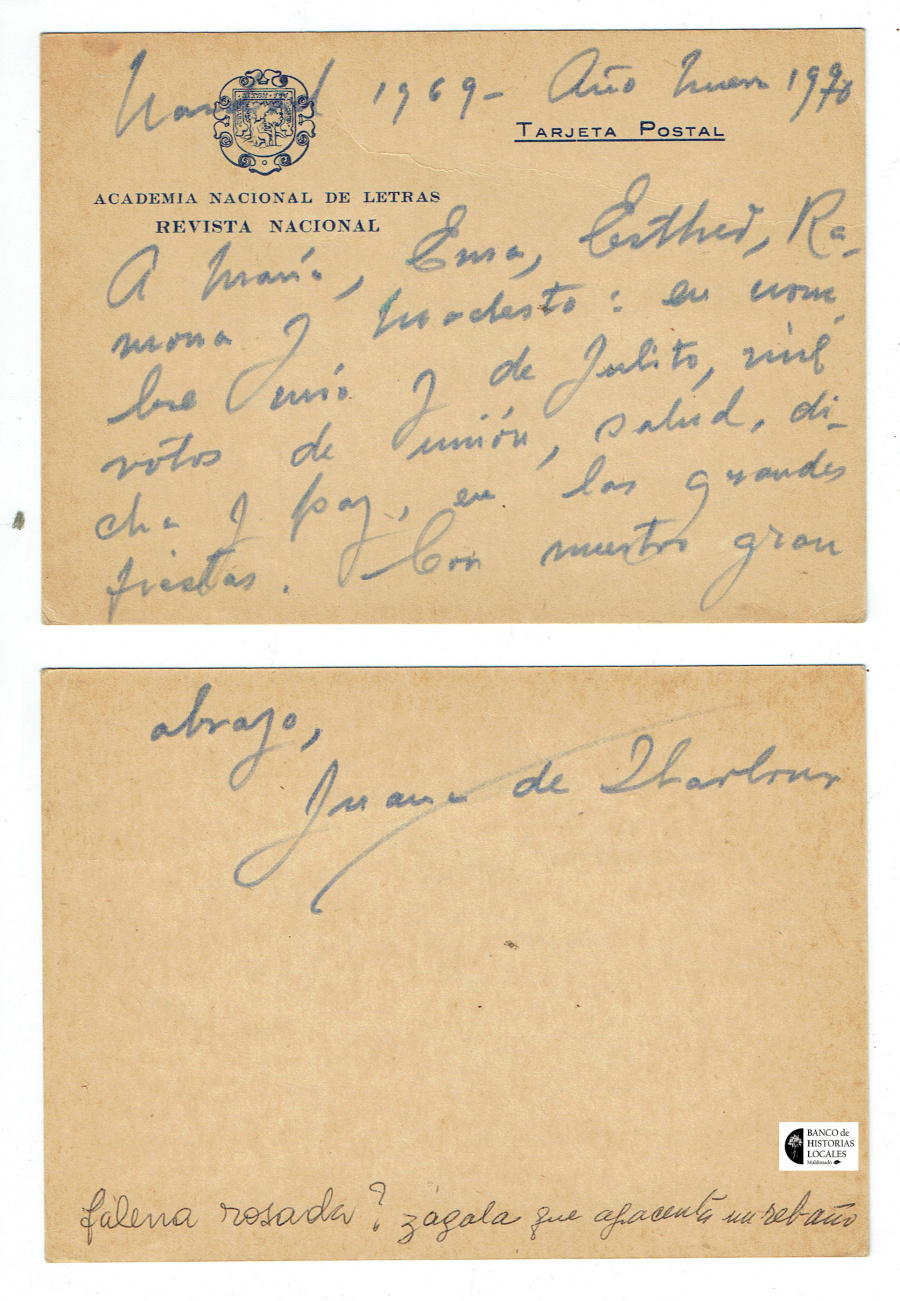 Navidad 1969 - Año Nuevo 1970
TARJETA POSTAL
ACADEMIA NACIONAL DE LETRAS
REVISTA NACIONAL
A María, Ema, Esther, Ra-
mona y Modesto: en nom
bre mío y de Julito, mil
votos de unión, salud, di-
cha y paz, en las grandes
fiestas. Con nuestro gran
abrazo,
Juana de Ibarbourou
BANCO de
HISTORIAS
LOCALES
Maldonado
falena rosada? zagala que apacenta un rebaño